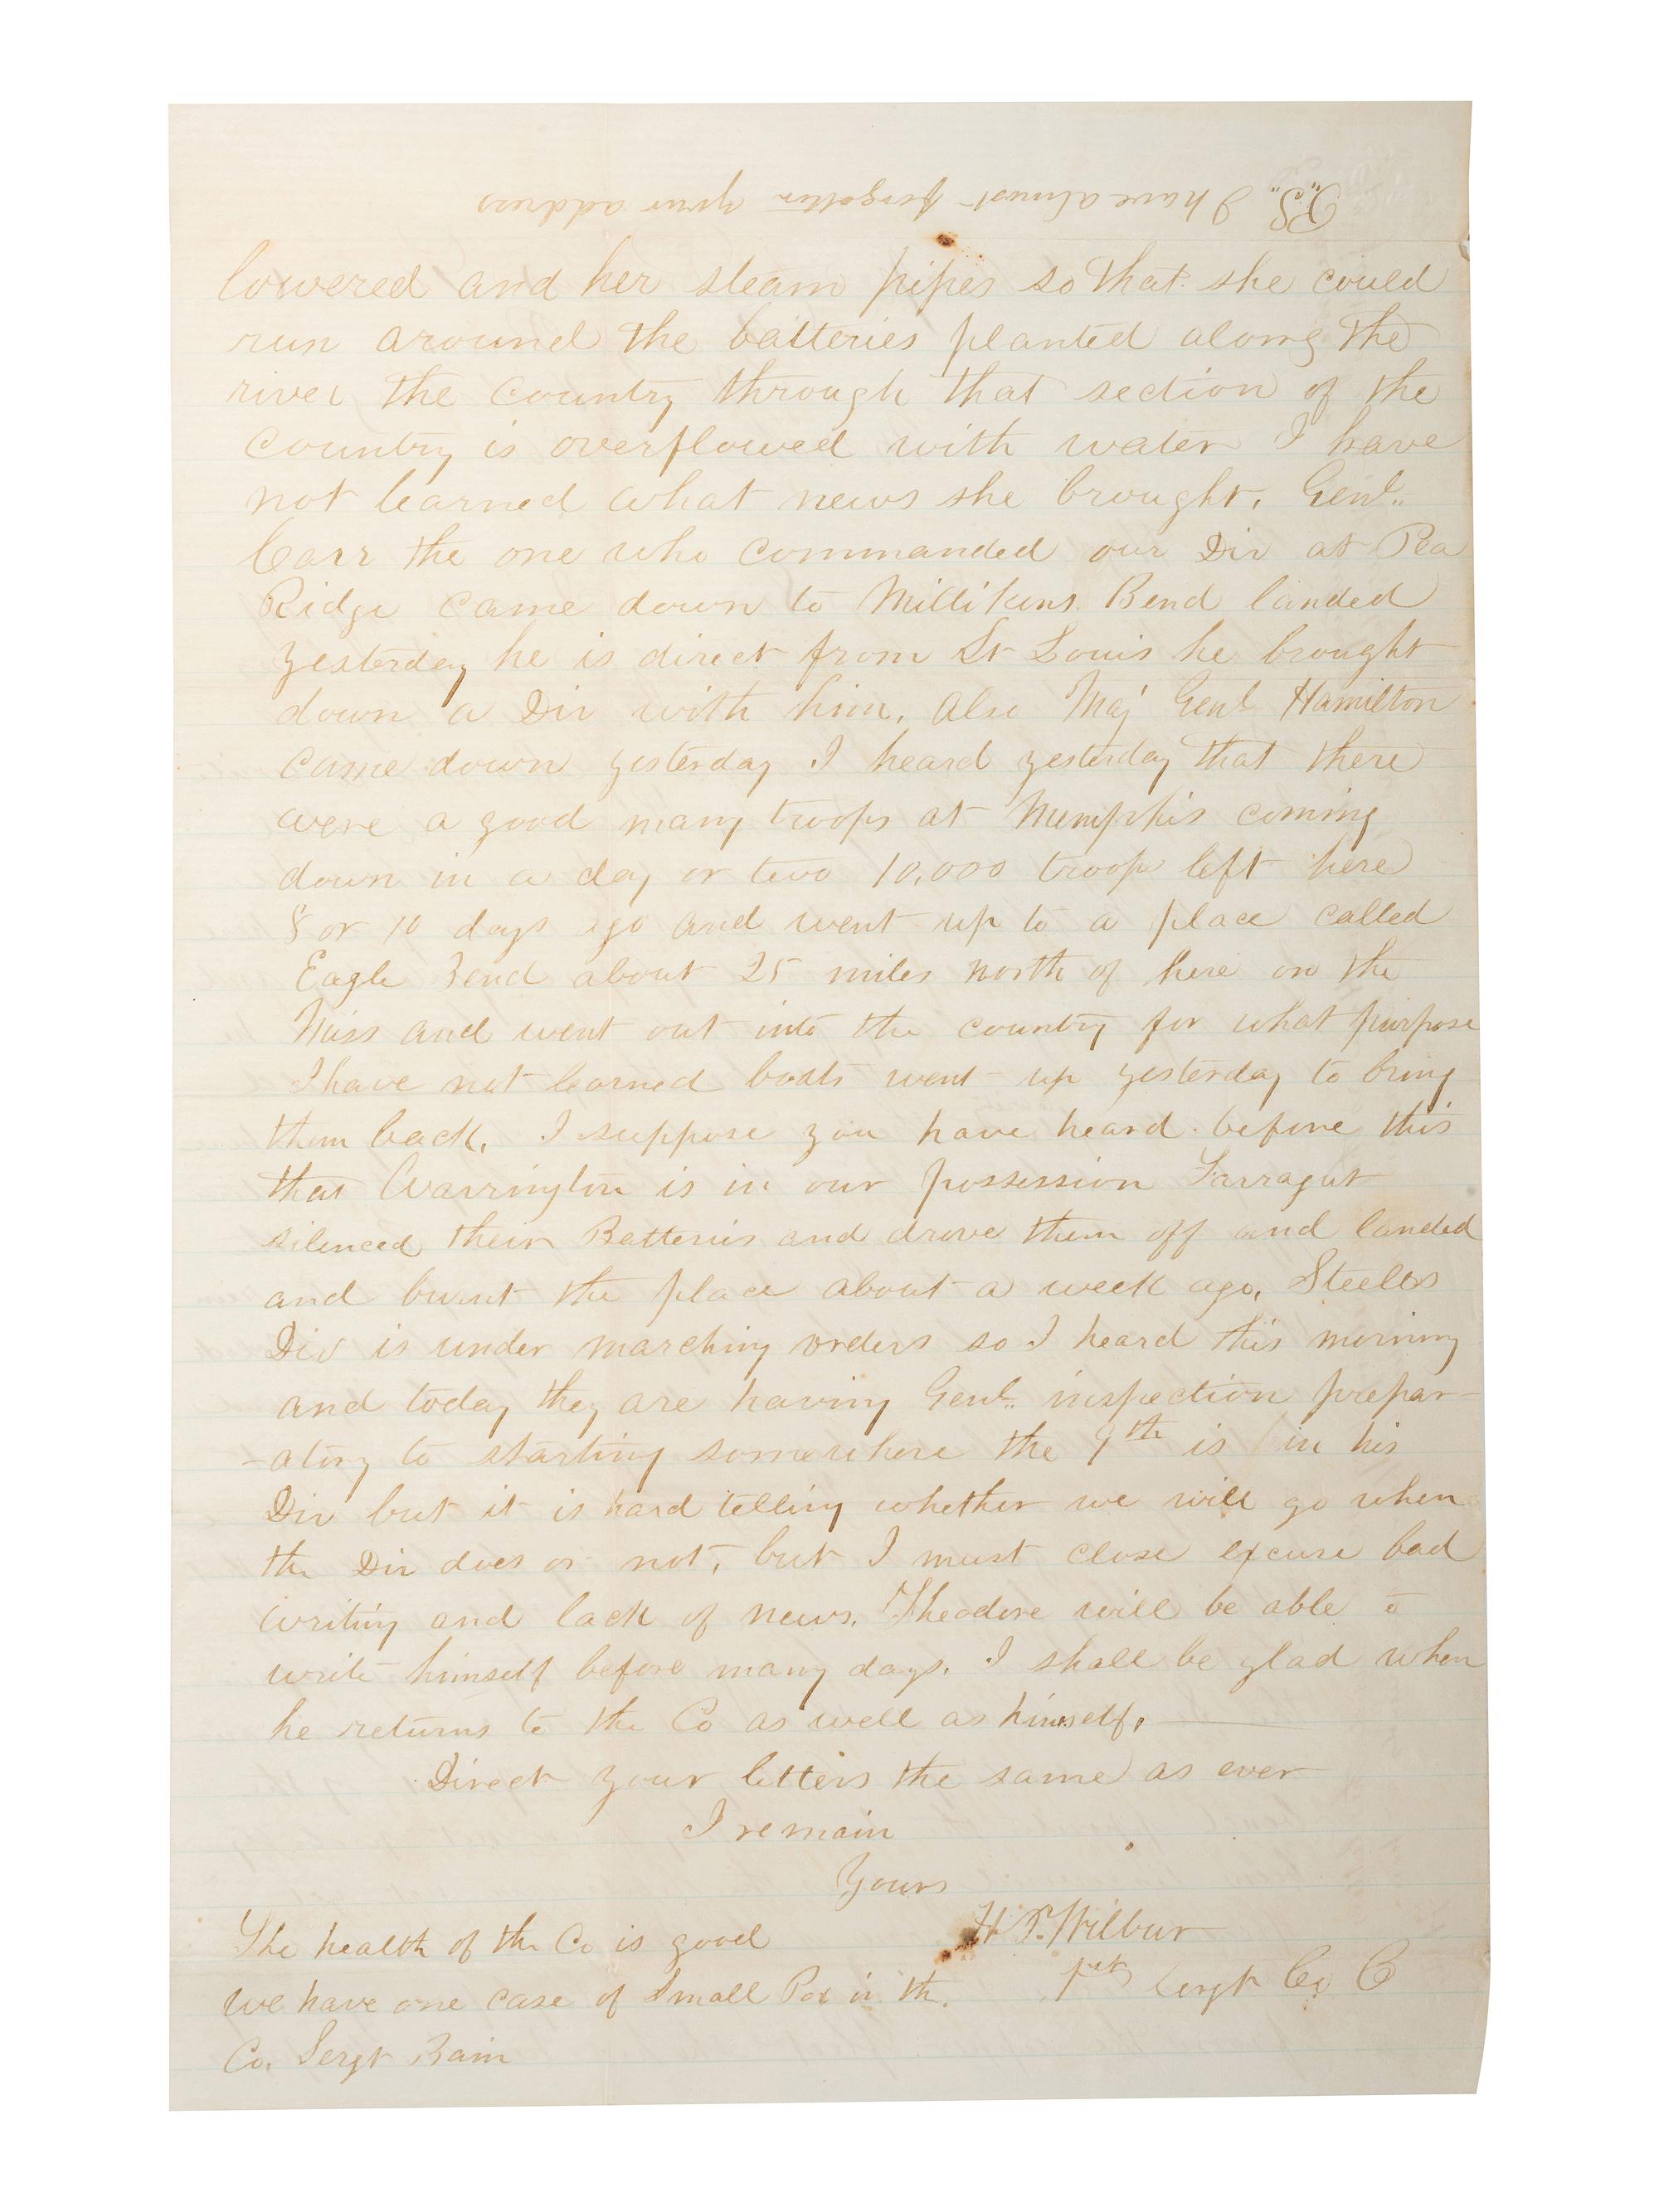 P.S. I have almost forgotten your address
lowered and her steam pipes so that she could
run around the batteries planted along the
river the country through that section of the
country is overflowed with water I have
not learned what news she brought. Genl.
Carr the one who commanded our Div at Pea
Ridge came down to Millikens Bend landed
yesterday he is direct from St Louis he brought
down a Div with him. Also Maj Genl Hamilton
came down yesterday I heard yesterday that there
were a good many troops at Memphis coming
down in a day or two 10,000 troops left here
8 or 10 days ago and went up to a place called
Eagle Bend about 25 miles north of here on the
Miss and went out into the country for what purpose
I have not learned boats went up yesterday to bring
them back. I suppose you have heard before this
that Warrington is in our possession Farragut
silenced their Batteries and drove them off and landed
and burnt the place about a week ago, Steeles
Div is under marching orders so I heard this morning
and today they are having Genl. inspection prepar-
-atory to starting somewhere the 9th is in his
Div but it is hard telling whether we will go when
the Div does or not, but I must close excuse bad
writing and lack of news. Theodore will be able to
write himself before many days. I shall be glad when
he returns to the Co as well as himself.
Direct your letters the same as ever
I remain
Yours
H. T. Wilbur
1st Sergt Co C
The health of the Co is good
we have one case of Small Pox in the.
Co. Sergt Bain